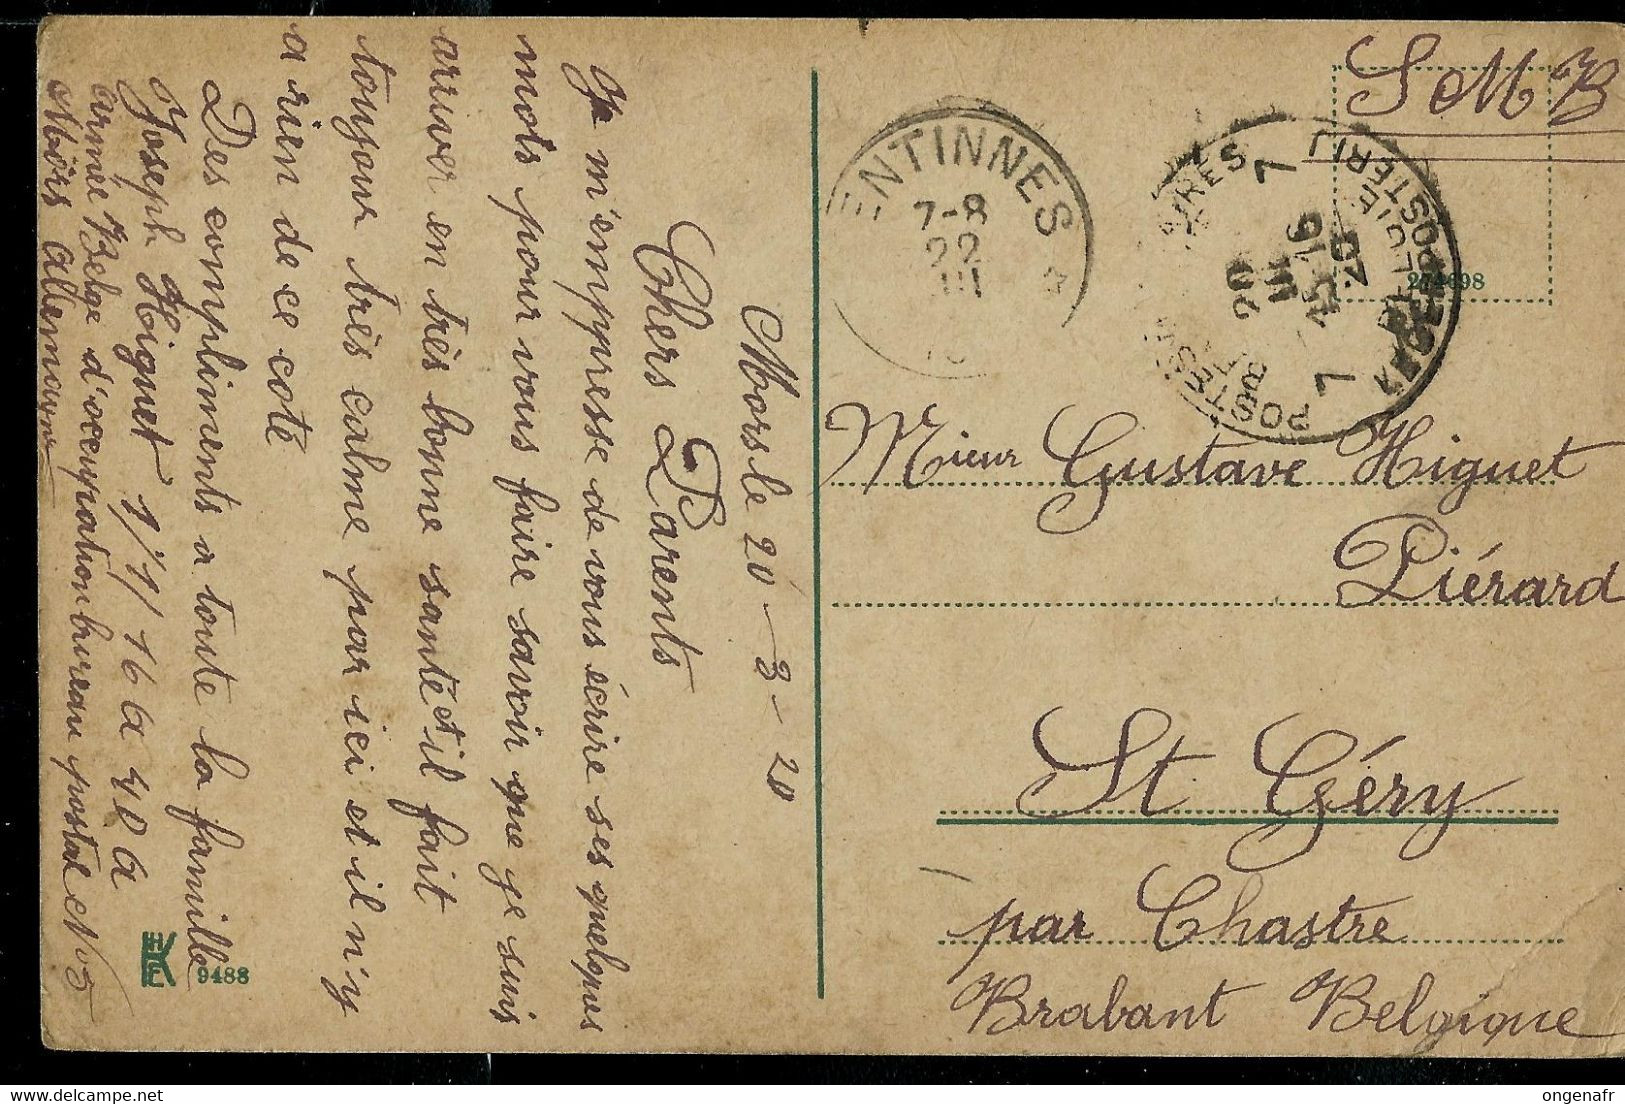 Mors le 20 – 3 – 20
Chers Parents
Je m'empresse de vous écrire ses quelques
mots pour vous faire savoir que je suis
arriver en très bonne santé et il fait
toujour très calme par ici et il n'y
a rien de ce coté
Des compliments a toute la famille
Joseph Higuet 1/1/16 a 4D a
armée Belge d'occupation bureau postal No 5
Mörs Allemagne
HKCE
9488
S M B
ENTINNES
7-8
22
III
POSTES MILITAIRES
7
20
III
15-16
20
7
274698
Mieur Gustave Higuet
Piérard
St Géry
par Chastre
Brabant Belgique
ongenafr